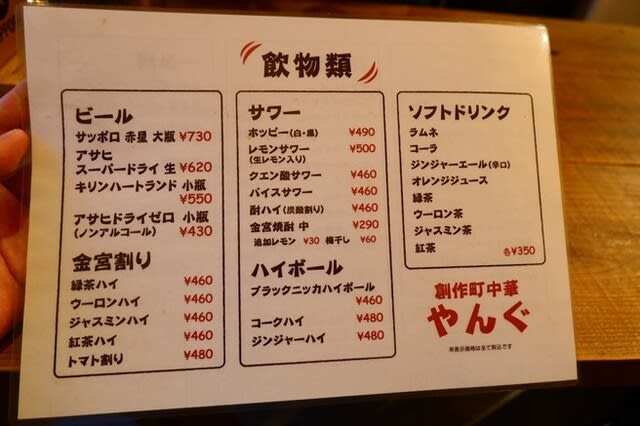 飲物類
ビール
サッポロ 赤星 大瓶 ¥730
アサヒ
スーパードライ 生 ¥620
キリンハートランド 小瓶
¥550
アサヒドライゼロ 小瓶
(ノンアルコール) ¥430
金宮割り
緑茶ハイ ¥460
ウーロンハイ ¥460
ジャスミンハイ ¥460
紅茶ハイ ¥460
トマト割り ¥480
サワー
ホッピー(白・黒) ¥490
レモンサワー ¥500
(生レモン入り)
クエン酸サワー ¥460
バイスサワー ¥460
酎ハイ(炭酸割り) ¥460
金宮焼酎 中 ¥290
追加レモン ¥30 梅干し ¥60
ハイボール
ブラックニッカハイボール
¥460
コークハイ ¥480
ジンジャーハイ ¥480
ソフトドリンク
ラムネ
コーラ
ジンジャーエール(辛口)
オレンジジュース
緑茶
ウーロン茶
ジャスミン茶
紅茶 各¥350
創作町中華
やんぐ
※表示価格は全て税込です